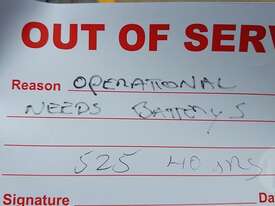 OUT OF SERV
Reason OPERATIONAL
NEEDS BATTERYS
525 40 JRS
Signature Da